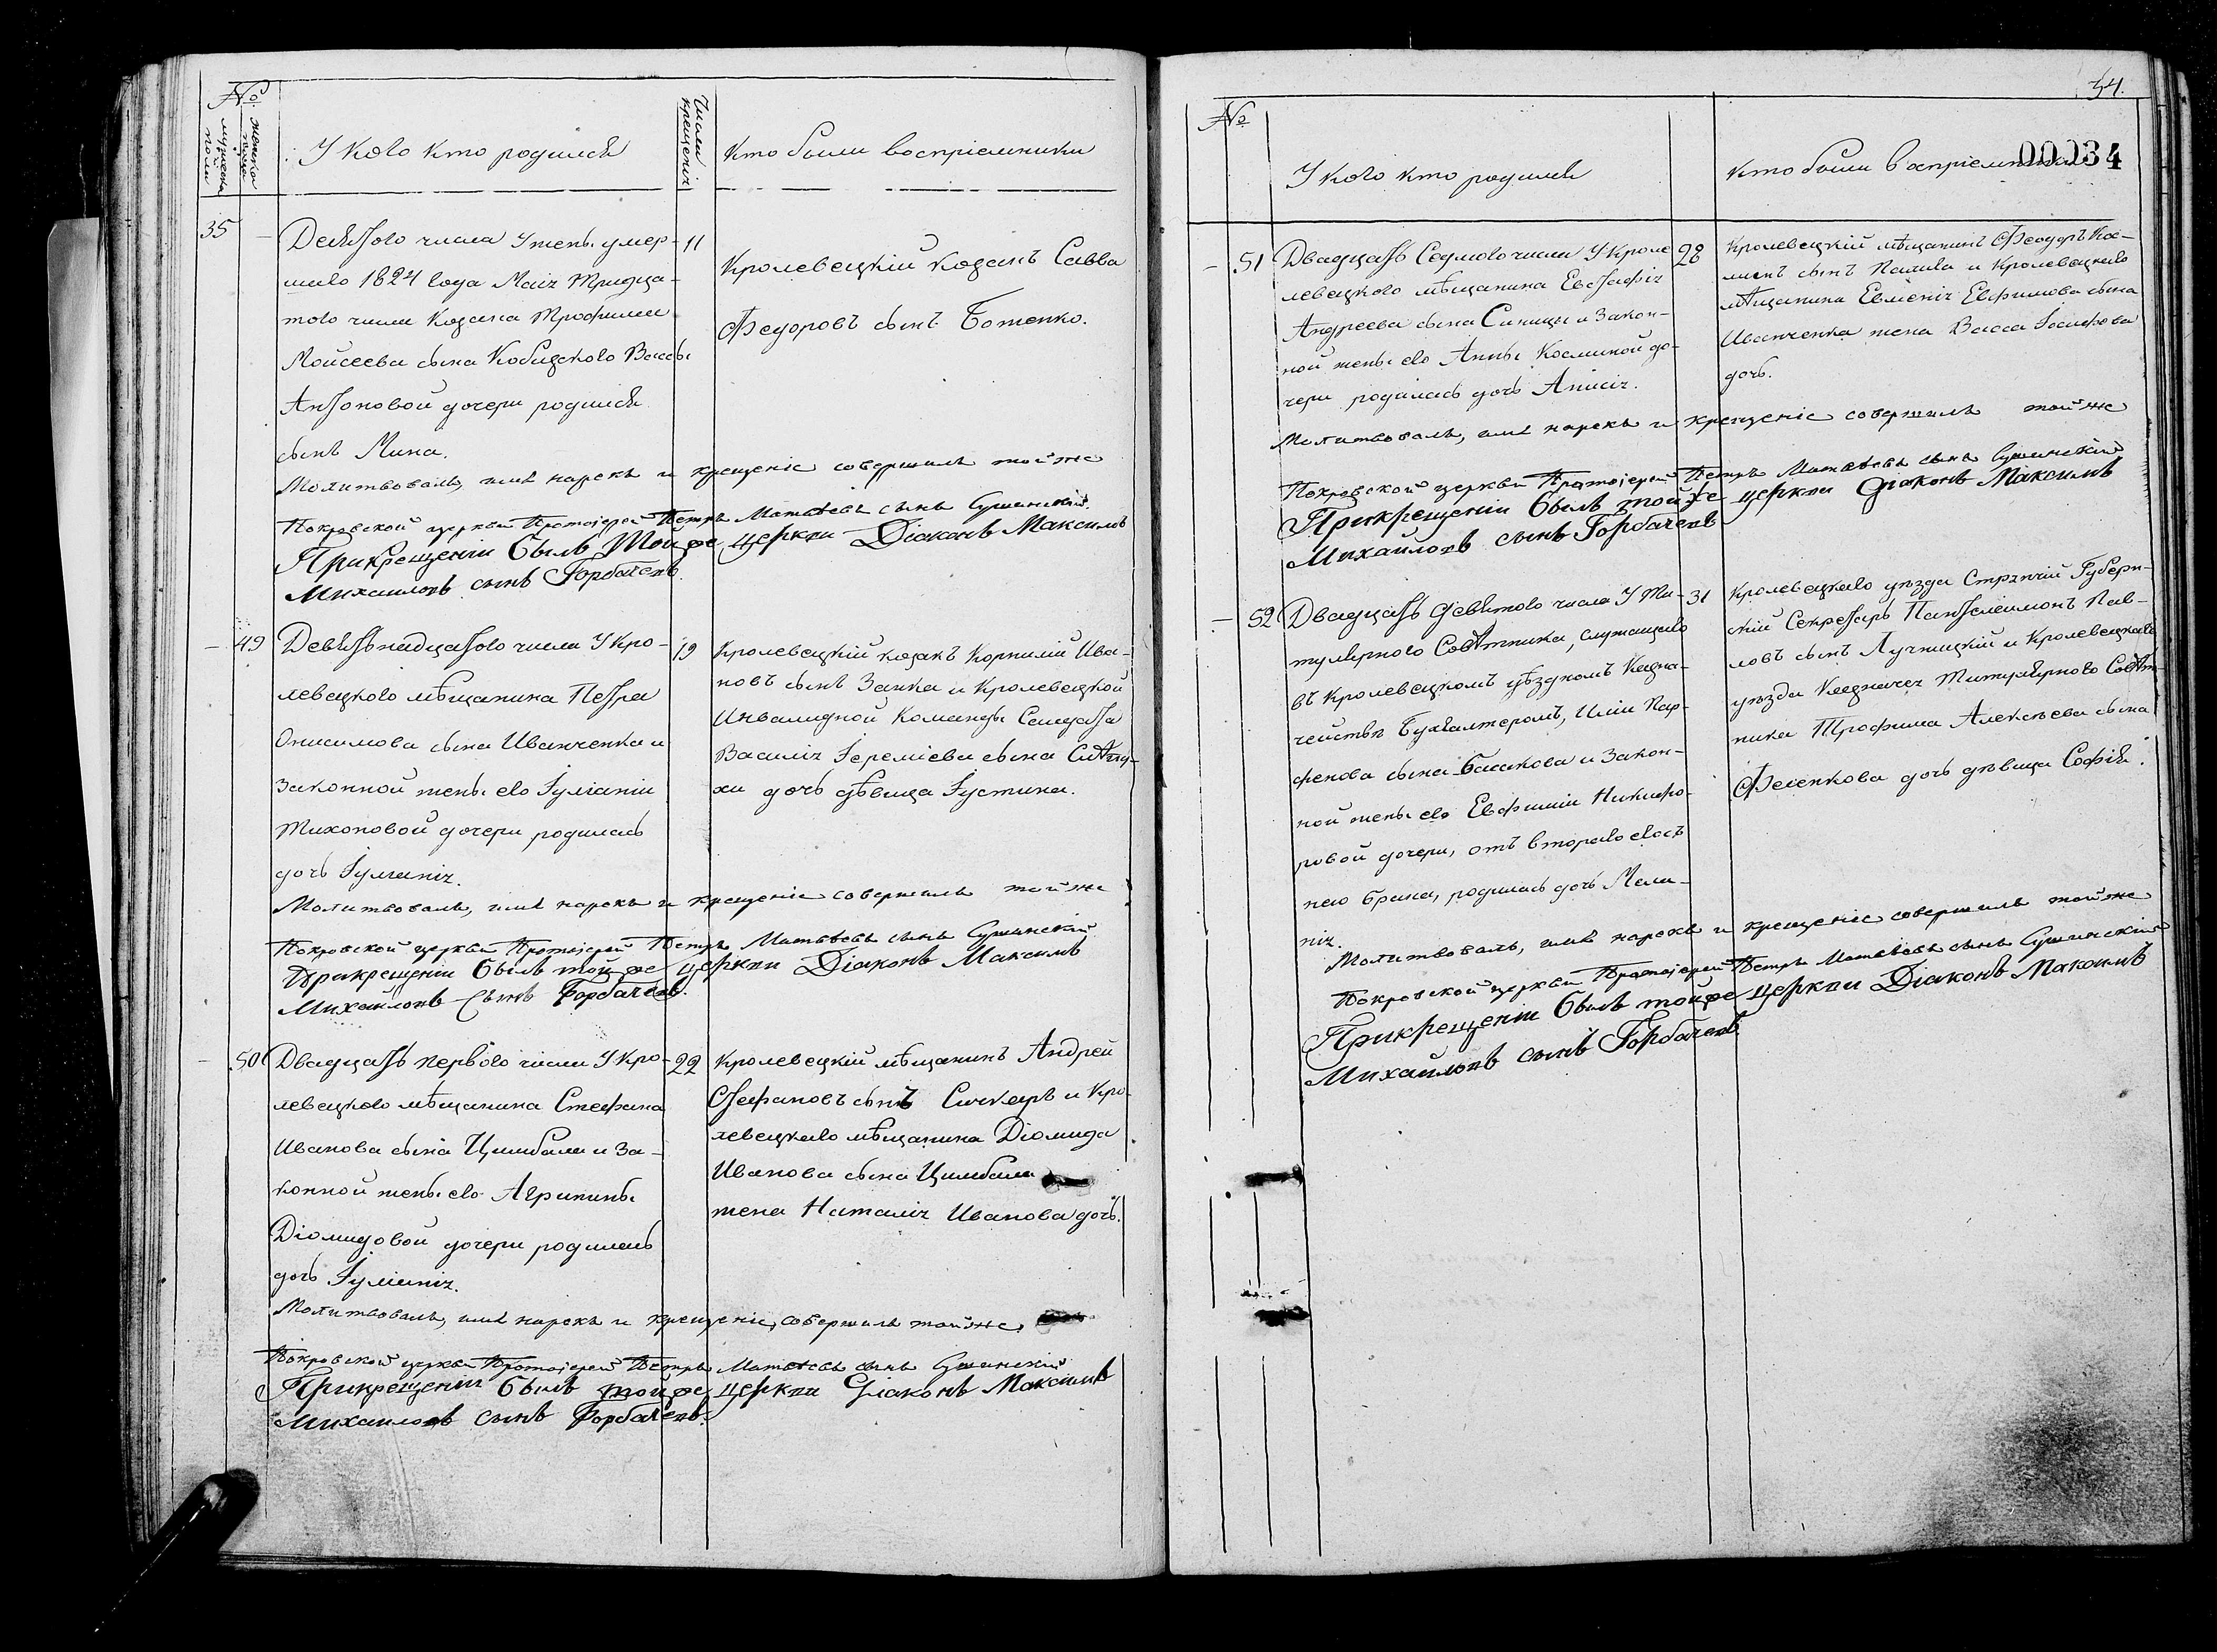 №
женска пола
мужеска пола
У кого кто родился
Число крещенія
Кто были воспріемники
35 –
Десятого числа У жены умер- 11
шаго 1824 года Маія тридца-
того числа Козака Трофима
Мойсеева сына Кобизского Вассы
Антоновой дочери родился
сынъ Мина.
Кролевецкій козакъ Савва
Федоровъ сынъ Ботенко.
Молитвовалъ, имя нарекъ и крещеніе совершилъ той же
Покровской церкви Протоіерей Петръ Матѳеевъ сынъ Сушинскій.
При крещеніи былъ той же церкви Діаконъ Максимъ
Михайловъ сынъ Горбачевъ.
– 49 Девятьнадцатого числа У Кро- 19
левецкого мѣщанина Петра
Онисимова сына Иванченка и
Законной жены его Іуліаніи
Тихоновой дочери родилась
дочь Іуліанія.
Кролевецкій козакъ Корнилій Ива-
новъ сынъ Заика и Кролевецкой
Инвалидной Команды Салдата
Василія Іереміева сына
дочь дѣвица Іустина.
Молитвовалъ, имя нарекъ и крещеніе совершилъ той же
Покровской церкви Протоіерей Петръ Матѳеевъ сынъ Сушинскій
При крещеніи былъ той же церкви Діаконъ Максимъ
Михайловъ сынъ Горбачевъ.
– 50 Двадцать первого числа У Кро- 22
левецкого мѣщанина Стефана
Иванова сына Цимбала и За-
конной жены его Агрипины
Діомидовой дочери родилась
дочь Іуліанія.
Кролевецкій мѣщанинъ Андрей
Стефановъ сынъ Сичкарь и Кро-
левецкаго мѣщанина Діомида
Иванова сына Цимбала
жена Наталія Иванова дочь.
Молитвовалъ, имя нарекъ и крещеніе, совершилъ той же,
Покровской церкви Протоіерей Петръ Матѳеевъ сынъ Сушинскій
При крещеніи былъ той же церкви Діаконъ Максимъ
Михайловъ сынъ Горбачевъ.
34.
00034
№
У кого кто родился
Кто были воспріемники
– 51 Двадцать Седмого числа У Кроле- 28
левецкого мѣщанина Евстафія
Андреева сына Синицы и Закон-
ной жены его Анны Косминой до-
чери родилась дочь Анисія.
Кролевецкій мѣщанинъ Феодоръ Кос-
минъ сынъ Палива и Кролевецкаго
мѣщанина Евменія Евфимова сына
Иванченка жена Васса Іосифова
дочь.
Молитвовалъ, имя нарекъ и крещеніе совершилъ той же
Покровской церкви Протоіерей Петръ Матѳеевъ сынъ Сушинскій
При крещеніи былъ той же церкви Діаконъ Максимъ
Михайловъ сынъ Горбачевъ
– 52 Двадцать девятого числа У Ти- 31
тулярного Совѣтника, служащаго
въ Кролевецкомъ уѣздномъ Казна-
чействѣ Бухгалтеромъ, Иліи Пар-
фенова сына Башкова и Закон-
ной жены его Евфиміи Никифо-
ровой дочери, отъ второго его съ
нею брака, родилась дочь Мела-
нія.
Кролевецкаго уѣзда Стряпчій Губерн-
скій Секретарь Пантелеимонъ Пав-
ловъ сынъ Лучицкій и Кролевецкаго
уѣзда Казначея Титулярного Совѣт-
ника Трофима Алексѣева сына
Фесенкова дочь дѣвица Софія.
Молитвовалъ, имя нарекъ и крещеніе совершилъ той же
Покровской церкви Протоіерей Петръ Матѳеевъ сынъ Сушинскій
При крещеніи былъ той же церкви Діаконъ Максимъ
Михайловъ сынъ Горбачевъ